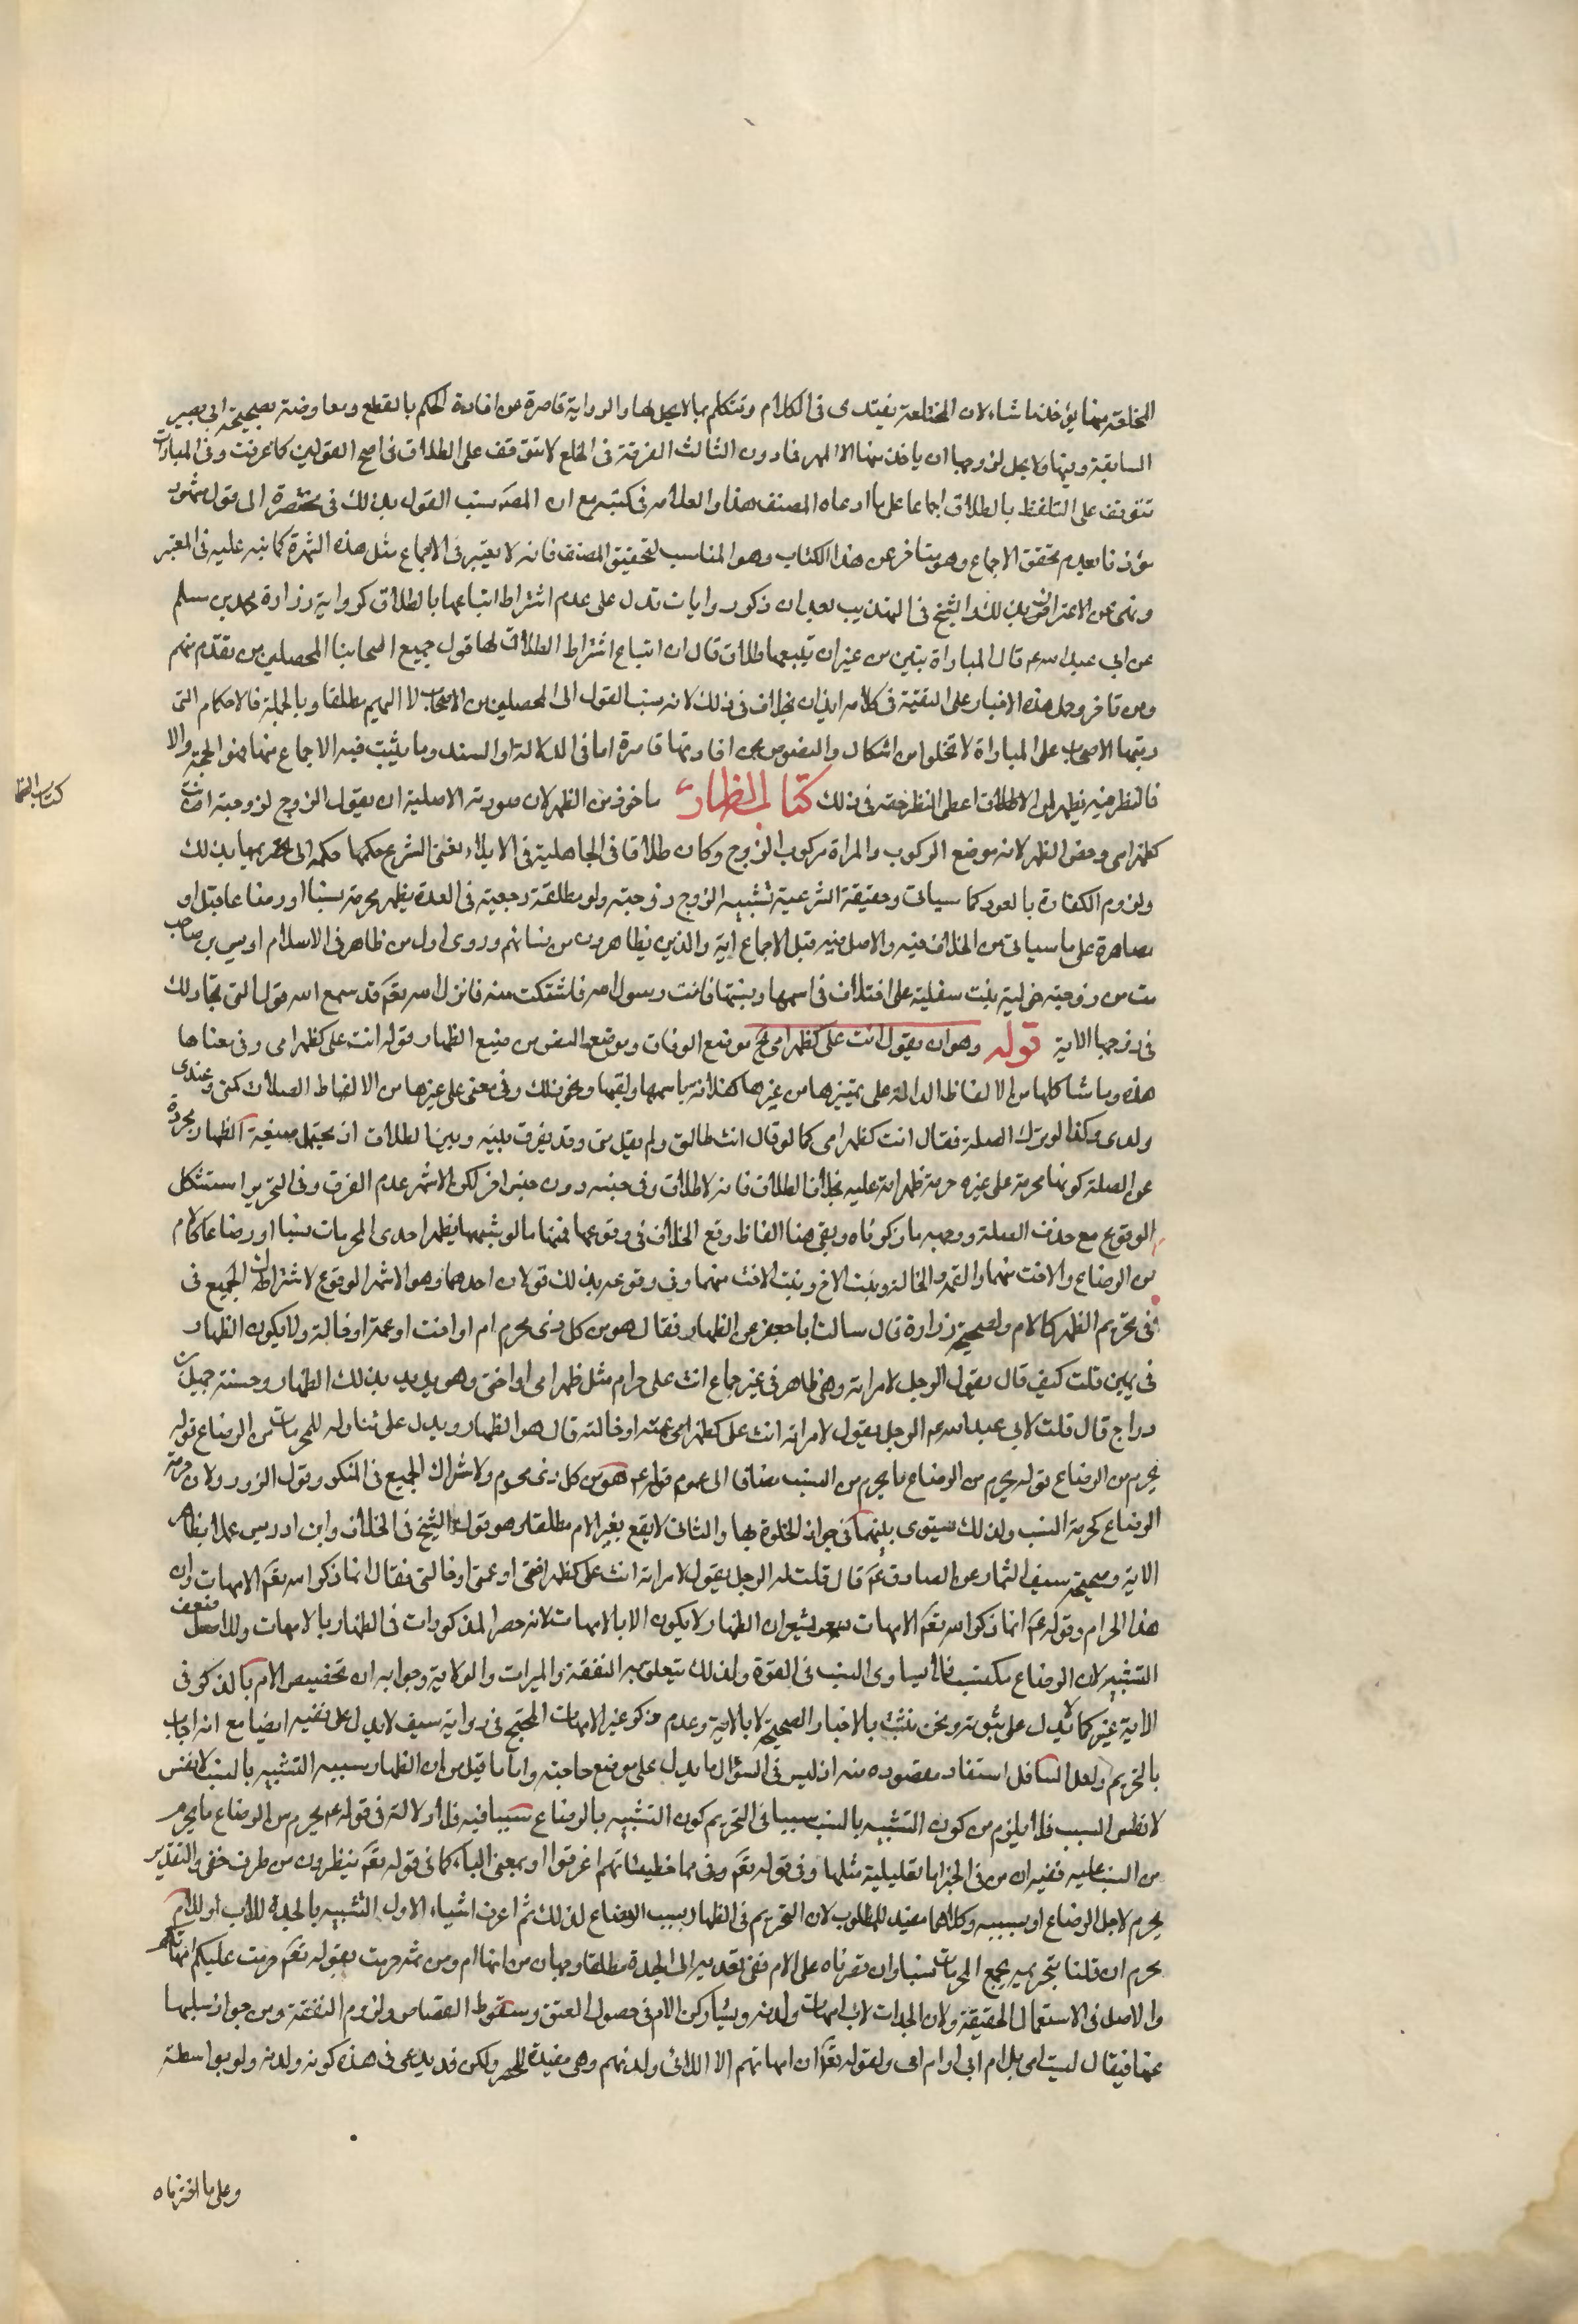 المختلعة منها يؤخذ ما شاء لان المختلعة يفتدى فى الكلام وتتكلم بما لا يحل لها والرواية قاصرة عن افادة الحكم بالقطع ومعاوضة بصحيحة ابى بصير
السابقة وبينها ولا يحل لزوجها ان ياخذ منها الا المهر فما دون الثالث الفرقة فى الخلع لا تتوقف على الطلاق فى اصح القولين كما عرفت وفى المباراة
تتوقف على التلفظ بالطلاق اجماعا على ما ادعاه المصنف هنا والعلامه فى كتبه مع ان المصَ نسب القول بذلك فى مختصره الى قول مشهور
مؤذنا بعدم تحقق الاجماع وهو متاخر عن هذا الكتاب وهو المناسب لتحقيق المصنف فانه لا يعتبر فى الاجماع مثل هذه الشهرة كما نبه عليه فى المعتبر
ونمى عن الاعتراف بذلك الشيخ فى التهذيب بعد ان ذكر روايات تدل على عدم اشتراط اتباعها بالطلاق كرواية زرارة ومحمد بن مسلم
عن ابي عبد الله ع قال المباراة تبين من غير ان يتبعها طلاق قال ان اتباع اشتراط الطلاق لها قول جميع اصحابنا المحصلين من تقدّم منهم
ومن تاخر وحمل هذه الاخبار على التقية فى كلامه ايذان بخلاف فى ذلك لانه نسب القول الى المحصلين من الاصحاب لا اليهم مطلقا وبالجملة فالاحكام التى
رتبها الاصحاب على المباراة لا تخلوا من اشكال والنصوص عن افادتها قاصرة اما فى الدلالة او السند وما يثبت فيه الاجماع منها فهو الحجة والا
فالنظر فيه يظهر لمن الاطلاق اعطى النظر حقه فى ذلك كتاب الظهار ماخوذ من الظهر لان صورته الاصلية ان يقول الزوج لزوجته انت
كظهر امى وخص الظهر لانه موضع الركوب والمراة مركوب الزوج وكان طلاقا فى الجاهلية فى الايلاء فغيّر الشرع حكمها حكمه الى تحريمها بذلك
ولزوم الكفارة بالعود كما سياتى وحقيقة الشرعية تشبيه الزوج زوجته ولو مطلقة رجعية فى العدة بظهر محرمة نسبا او رضاعا قيل او
مصاهرة على ما سياتى من الخلاف فيه والاصل فيه قبل الاجماع اية والذين يظاهرون من نسائهم وروى اول من ظاهر فى الاسلام اويس بن صامت
مت من زوجته خولية بنت سفلية على اختلاف فى اسمها ونسبتها فاتت رسول الله فاشتكت منه فانزل الله تعَ قد سمع الله قول التى تجادلك
فى زوجها الاية قوله وهو ان يقول انت على كظهر امى الخ موضع الوفاق وموضع النص من صيغ الظهار قوله انت على كظهر امى وفى معناها
هذه وما شاكلها من الالفاظ الدالة على تميزها من غيرها كهذا نه باسمها ولقبها ونحو ذلك وفى معنى على غيرها من الالفاظ الصلات كمنى وعندى
ولدى وكذا لو ترك الصلة فقال انت كظهر امى كما لو قال انت طالق ولم يقل منى وقد يفرق بينه وبين الطلاق ان يحتمل صيغة الظهار مجردة
عن الصلة كونها محرمة على غيره حرمة ظهر امه عليه بخلاف الطلاق فانه لا طلاق وفى حبسه دون حبس اخر لكن الاشهر عدم الفرق وفى التحرير استشكل
الوقوع مع حذف الصلة ووجهه ما ذكرناه وبقى هنا الفاظ وقع الخلاف فى وقوعها فمنها ما لو شبهها بظهر احدى المحرمات نسبا او رضاعا كالام
من الرضاع والاخت منهما والعمة والخالة وبنت الاخ وبنت الاخت منهما وفى وقوعه بذلك قولان احدهما وهو الاشهر الوقوع لاشتراك الجميع فى
فى تحريم الظهر كالام ولصحيحة زرارة قال سالت ابا جعفر عن الظهار فقال هو من كل ذى محرم ام او اخت او عمة او خالة ولا يكون الظهار
فى يمين قلت كيف قال يقول الرجل لامراته وهى طاهر فى غير جماع انت على حرام مثل ظهر امى او اختى وهو يريد بذلك الظهار وحسنة جميل بن
دراج قال قلت لابي عبد الله ع الرجل يقول لامراته انت على كظهر امى عمته او خالته قال هو الظهار ويدل على تناوله للمحرمات من الرضاع قوله
يحرم من الرضاع قوله يحرم من الرضاع ما يحرم من النسب مضافا الى عموم قوله ع هو من كل ذى محرم ولاشراك الجميع فى المنكر وقول الزور ولان حرمة
الرضاع كحرمة النسب ولذلك يستوى بينهما فى جواز الخلوة بها والثانى لا يقع بغير الام مطلقا وهو قول الشيخ فى الخلاف وابن ادريس عملا بظاهر
الاية وصحيحة سيف التمار عن الصادق عَ قال قلت له الرجل يقول لامراته انت على كظهر اختى او عمتى او خالتى فقال انما ذكر الله تعَ الامهات وان
هذا الحرام وقوله عَ انما ذكر الله تعَ الامهات يشعر ان الظهار لا يكون الا بالامهات لانه حصر المذكورات فى الظهار بالامهات وللاصل ضعف
التشبيه لان الرضاع مكتسب فلا يساوى النسب فى القوة ولذلك يتعلق به النفقة والميراث والولاية وجوابه ان تخصيص الام بالذكر فى
الاية غير كما لا يدل على ثبوته ونحن نثبت بالاخبار الصحيحة لا بالاية وعدم ذكر غير الامهات المحتج فى رواية سيف لا يدل على نفيه ايضا مع انه اجاب
بالتحريم ولعل السائل استفاد مقصوده منه اذ ليس فى السؤال ما يدل على موضع حاجته واما ما قيل من ان الظهار سببه التشبيه بالنسب لا نفس
لا نفس النسب فلا يلزم من كون التشبيه بالنسب سببا فى التحريم كون التشبيه بالرضاع سببا فيه فلا دلالة فى قوله ع يحرم من الرضاع ما يحرم
من النسب عليه ففيه ان من فى الخبر اما تعليلية مثلها وفى قوله تعَ وفى مما خطيئاتهم اغرقوا او بمعنى الباء كما فى قوله تعَ ينظرون من طرف خفى والتقدير
يحرم لاجل الرضاع او بسببه وكلاهما مفيد للمطلوب لان التحريم فى الظهار بسبب الرضاع لذلك ثم اعرف اشياء الاول التشبيه بالجدة للاب او للام
يحرم ان قلنا بتحريمه بجميع المحرمات نسبا وان قصرناه على الام ففى تعديه الى الجدة مطلقا وجهان من انها ام ومن ثم حرمت بقوله تعَ حرمت عليكم امهاتكم
والاصل فى الاستعمال الحقيقة ولان الجدات لاب امهات ولدنه ويشاركن الام فى حصول العتق وسقوط القصاص ولزوم النفقة ومن جواز سلبها
عنها فيقال ليست امى بل ام ابى او ام امى ولقوله تعَ ان امهاتهم الا اللائى ولدنهم وهى مفيدة للحصر ولكن قد يدعى فى هذه كونه ولدنه ولو بواسطة
وعلى ما اخترناه